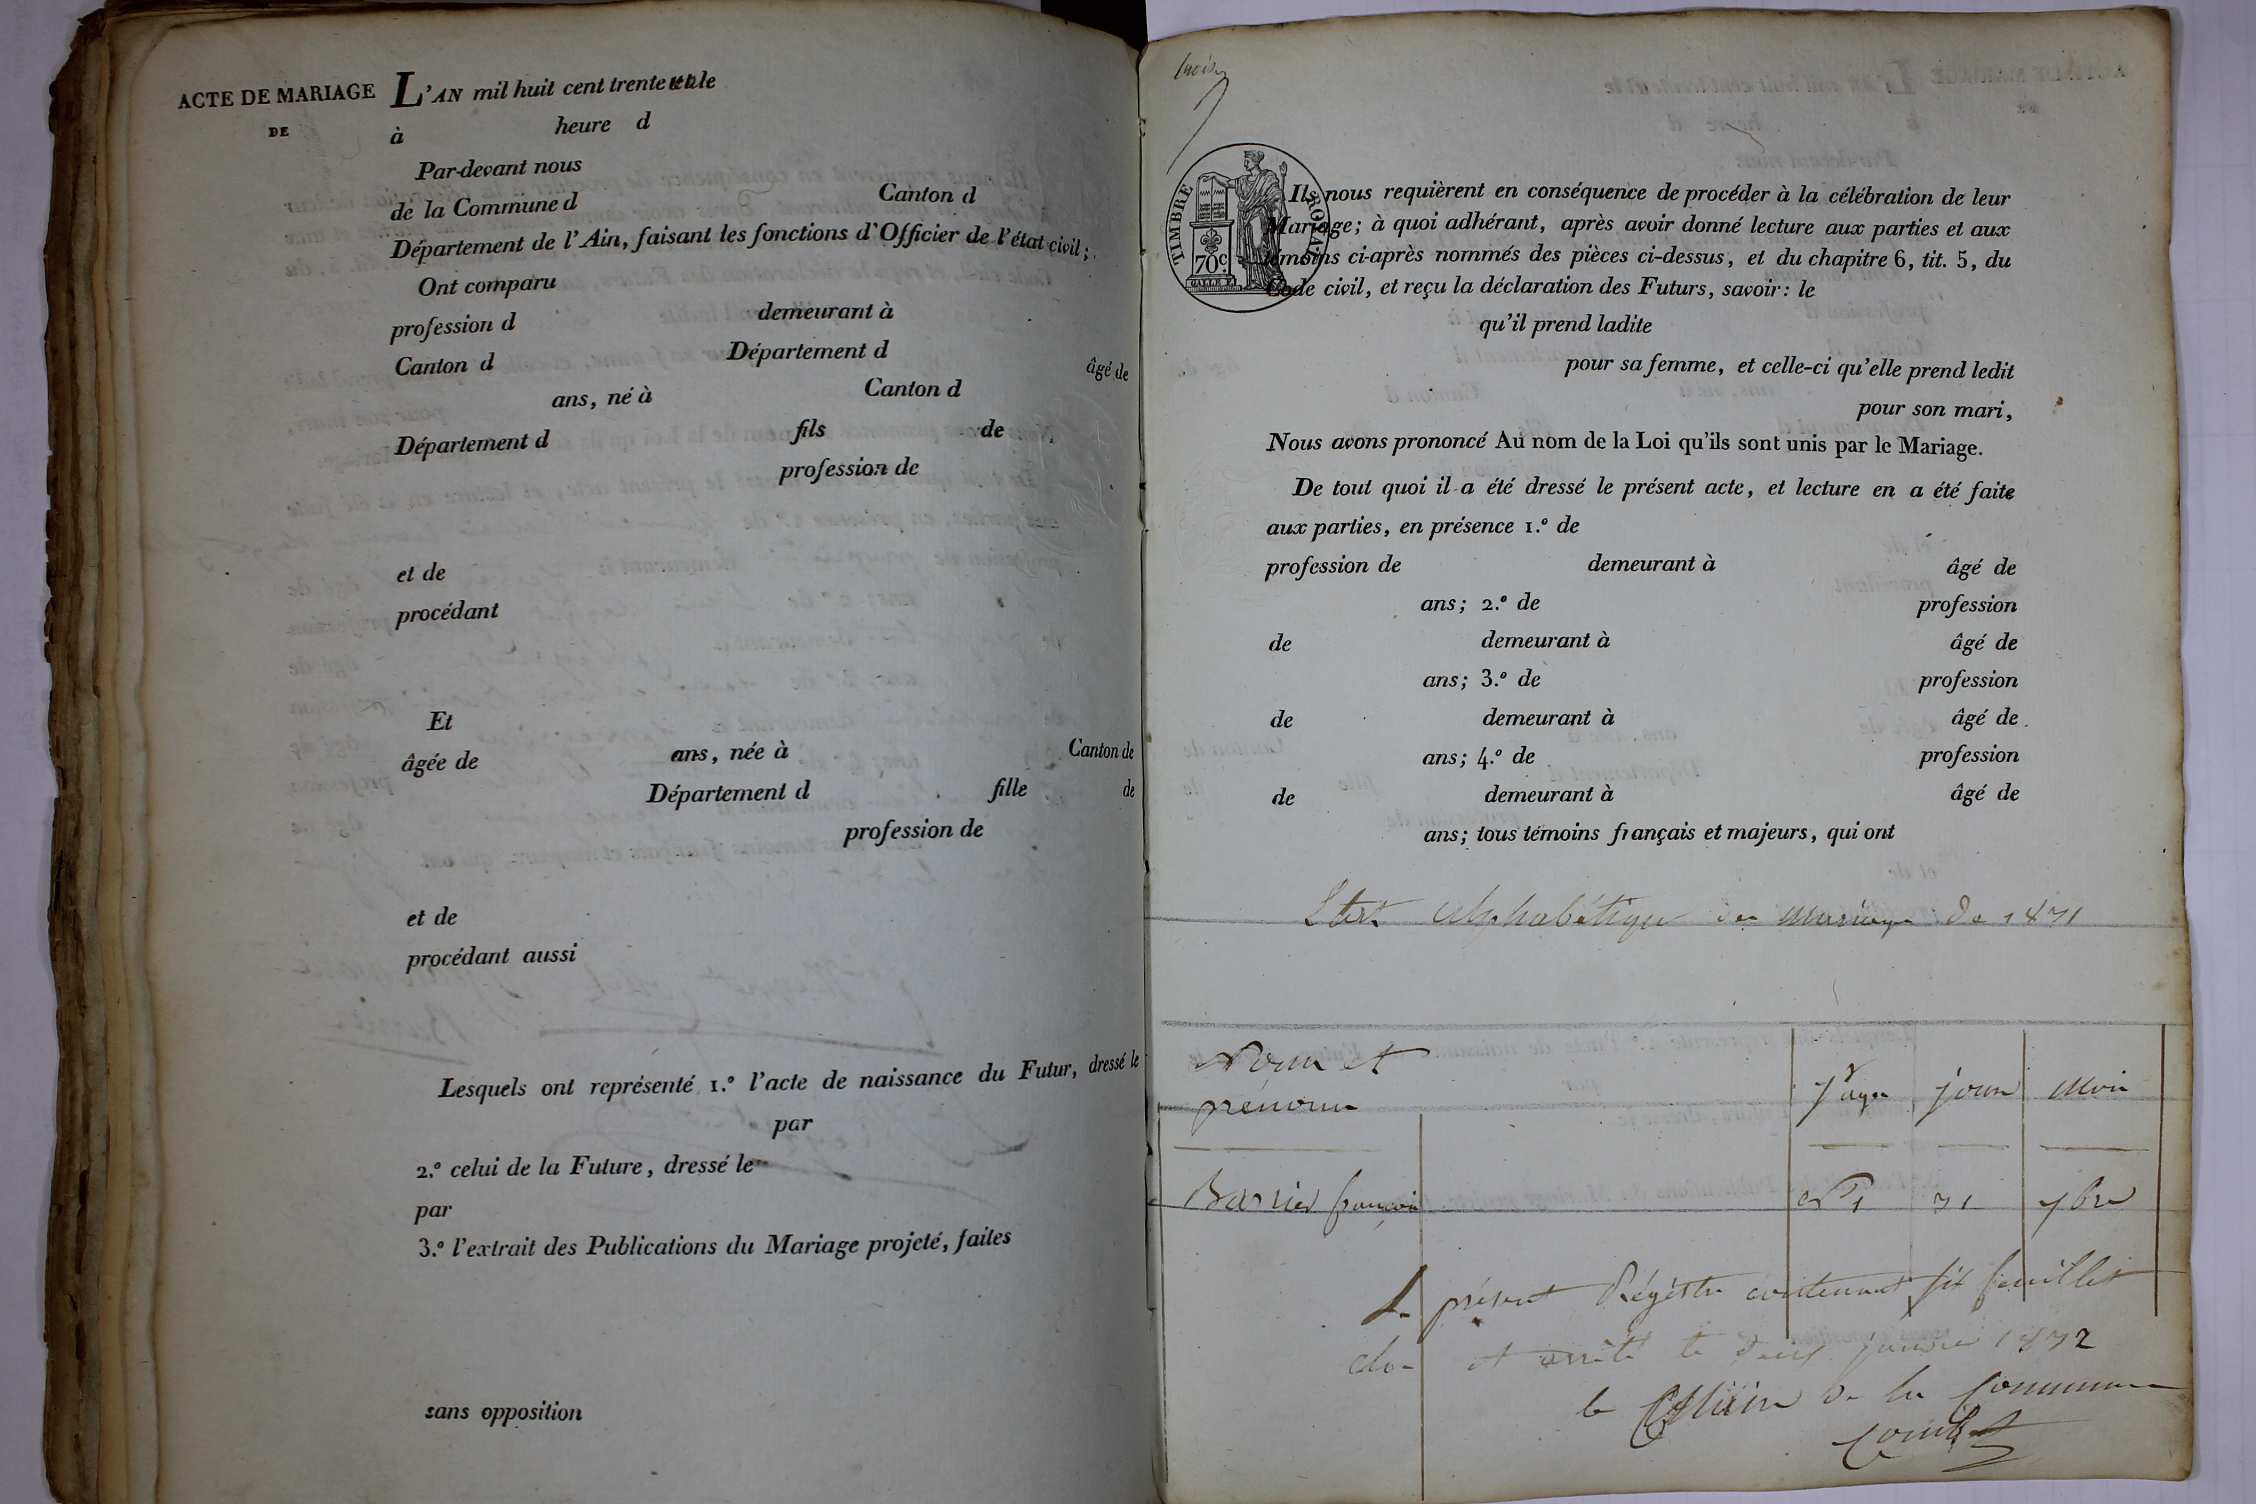 ACTE DE MARIAGE
DE
L'AN mil huit cent trente et le
à heure d
Par-devant nous
de la Commune d Canton d
Département de l'Ain, faisant les fonctions d'Officier de l'état civil;
Ont comparu
profession d demeurant à
Canton d Département d âgé de
ans, né à Canton d
Département d fils de
profession de
et de
procédant
Et
âgée de ans, née à Canton de
Département d fille de
profession de
et de
procédant aussi
Lesquels ont représenté 1.º l'acte de naissance du Futur, dressé le
par
2.º celui de la Future, dressé le
par
3.º l'extrait des Publications du Mariage projeté, faites
sans opposition
trois
TIMBRE ROYAL
70c.
Ils nous requièrent en conséquence de procéder à la célébration de leur
Mariage; à quoi adhérant, après avoir donné lecture aux parties et aux
témoins ci-après nommés des pièces ci-dessus, et du chapitre 6, tit. 5, du
Code civil, et reçu la déclaration des Futurs, savoir: le
qu'il prend ladite
pour sa femme, et celle-ci qu'elle prend ledit
pour son mari,
Nous avons prononcé Au nom de la Loi qu'ils sont unis par le Mariage.
De tout quoi il a été dressé le présent acte, et lecture en a été faite
aux parties, en présence 1.º de
profession de demeurant à âgé de
ans; 2.º de profession
de demeurant à âgé de
ans; 3.º de profession
de demeurant à âgé de
ans; 4.º de profession
de demeurant à âgé de
ans; tous témoins français et majeurs, qui ont
alphabétique des mariage de
Nom et
prénom
pages jour Mois
Barrier françois Nº 1
Le présent Régistre contenant six feuillet
clos et arrêté le deux janvier
le Maire de la Commune